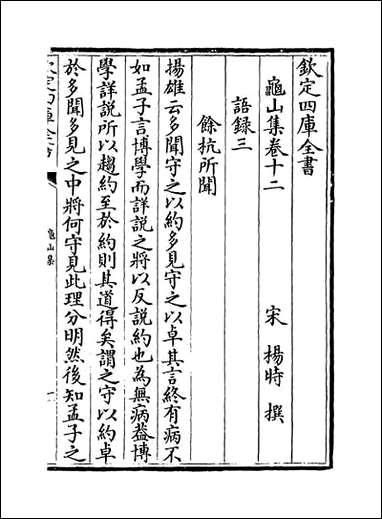 欽定四庫全書
龜山集卷十二
宋 楊時 撰
語録三
餘抗所聞
揚雄云多聞守之以約多見守之以卓其言終有病不
如孟子言博學而詳説之將以反説約也為無病葢博
學詳説所以趨約至於約則其道得矣謂之守以約卓
於多聞多見之中將何守見此理分明然後知孟子之
龜山集